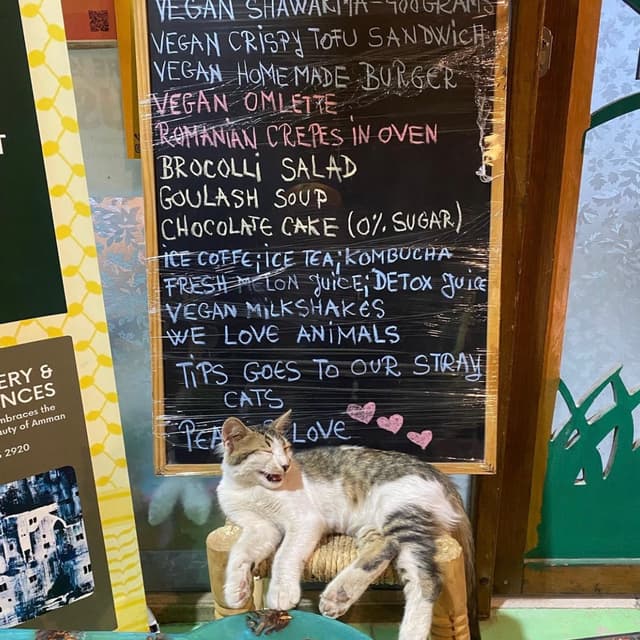 VEGAN SHAWARMA - 400GRAMS
VEGAN CRISPY TOFU SANDWICH
VEGAN HOMEMADE BURGER
VEGAN OMLETTE
ROMANIAN CREPES IN OVEN
BROCOLLI SALAD
GOULASH SOUP
CHOCOLATE CAKE (0% SUGAR)
ICE COFFE; ICE TEA; KOMBUCHA
FRESH MELON JUICE; DETOX JUICE
VEGAN MILKSHAKES
WE LOVE ANIMALS
TIPS GOES TO OUR STRAY
CATS
LOVE
T
ERY &
NCES
mbraces the
uty of Amman
2920